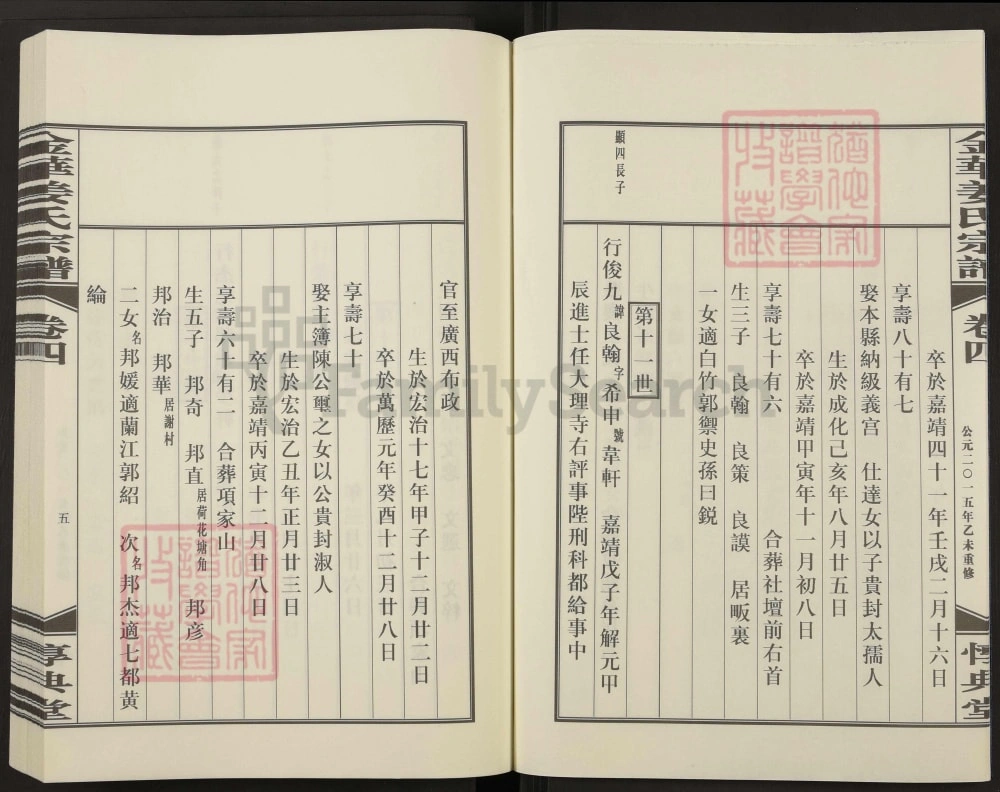 金華姜氏宗譜
卷四
公元二〇一五年乙未重修
惇典堂
卒於嘉靖四十一年壬戌二月十六日
享壽八十有七
娶本縣納級義官 仕達女以子貴封太孺人
生於成化己亥年八月廿五日
卒於嘉靖甲寅年十一月初八日
享壽七十有六 合葬社壇前右首
生三子 良翰 良策 良謨 居畈裏
一女適白竹郭禦史孫曰鋭
第十一世
顯四長子
行俊九諱良翰字希申號韋軒 嘉靖戊子年解元甲
辰進士任大理寺右評事陞刑科都給事中
官至廣西布政
生於宏治十七年甲子十二月廿二日
卒於萬歷元年癸酉十二月廿八日
享壽七十
娶主簿陳公璽之女以公貴封淑人
生於宏治乙丑年正月廿三日
卒於嘉靖丙寅十二月廿八日
享壽六十有二 合葬項家山
生五子 邦奇 邦直居荷花塘角 邦彦
邦治 邦華居謝村
二女名邦媛適蘭江郭紹 次名邦杰適七都黄
綸
金華姜氏宗譜
卷四
五
惇典堂
FamilySearch